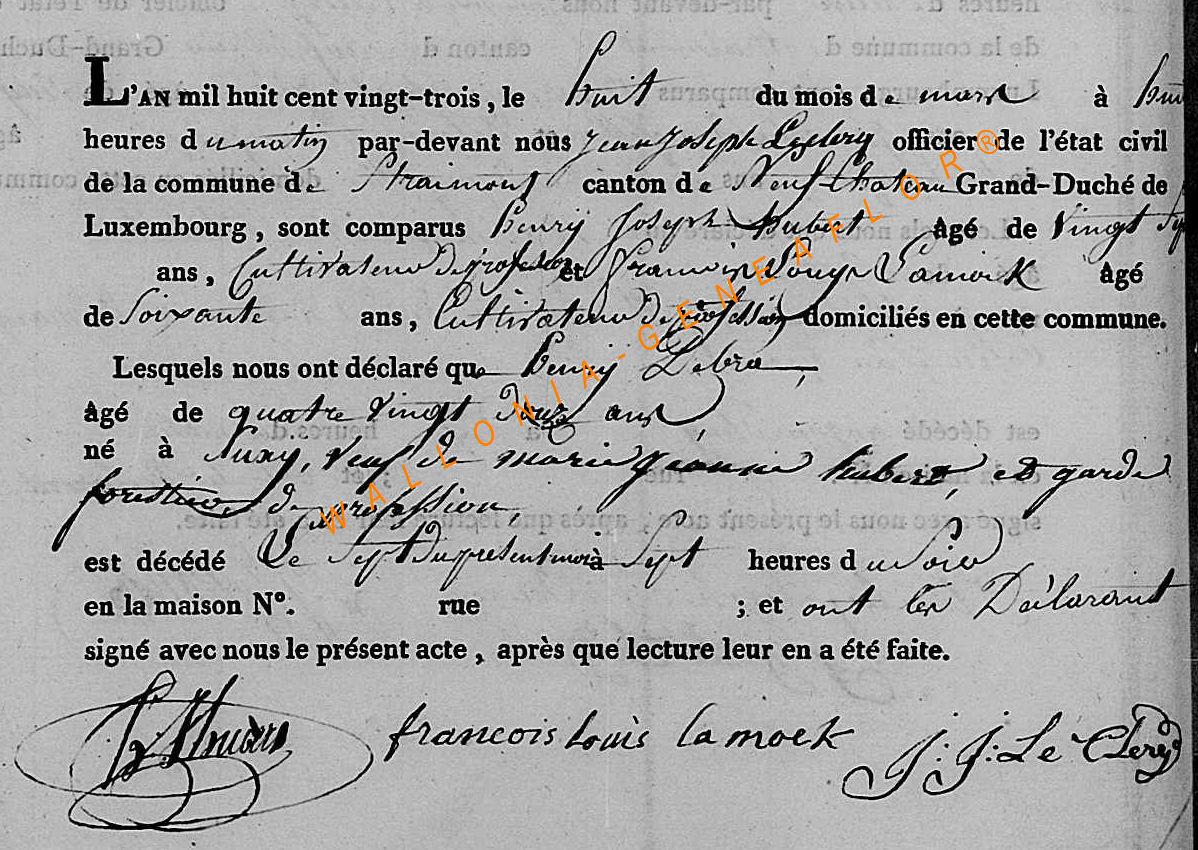 L'AN mil huit cent vingt-trois, le huit du mois de mars à
heures du matin par-devant nous Jean Joseph Leclery officier de l'état civil
de la commune de Straimont canton de Neufchateau Grand-Duché de
Luxembourg, sont comparus henry Joseph hubert âgé de vingt
ans, Cultivateur de profession et francois Louys Lamock âgé
de Soixante ans, Cultivateur de profession domiciliés en cette commune.
Lesquels nous ont déclaré que henry Lebra,
âgé de quatre vingt ans,
né à veuf de marie jeanne hubert, et garde
forestier de profession,
est décédé Le Sept du present mois à Sept heures du Soir
en la maison N°. rue ; et ont les Déclarant
signé avec nous le présent acte, après que lecture leur en a été faite.
francois Louis lamock J: J: Le Clery
WALLONIA-GENEAFLOR®